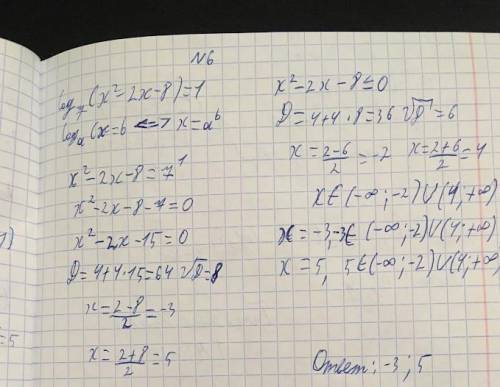 №6
log₇(x²-2x-8)=1
logₐ(x=b <=> x=aᵇ
x²-2x-8=7¹
x²-2x-8-7=0
x²-2x-15=0
D=4+4·15=64 √D=8
x=(2-8)/2=-3
x=(2+8)/2=5
x²-2x-8≤0
D=4+4·8=36 √D=6
x=(2-6)/2=-2 x=(2+6)/2=4
x∈(-∞;-2)∪(4;+∞)
x=-3,-3∈(-∞;-2)∪(4;+∞
x=5, 5∈(-∞;-2)∪(4;+∞
Ответ: -3;5
)
=5